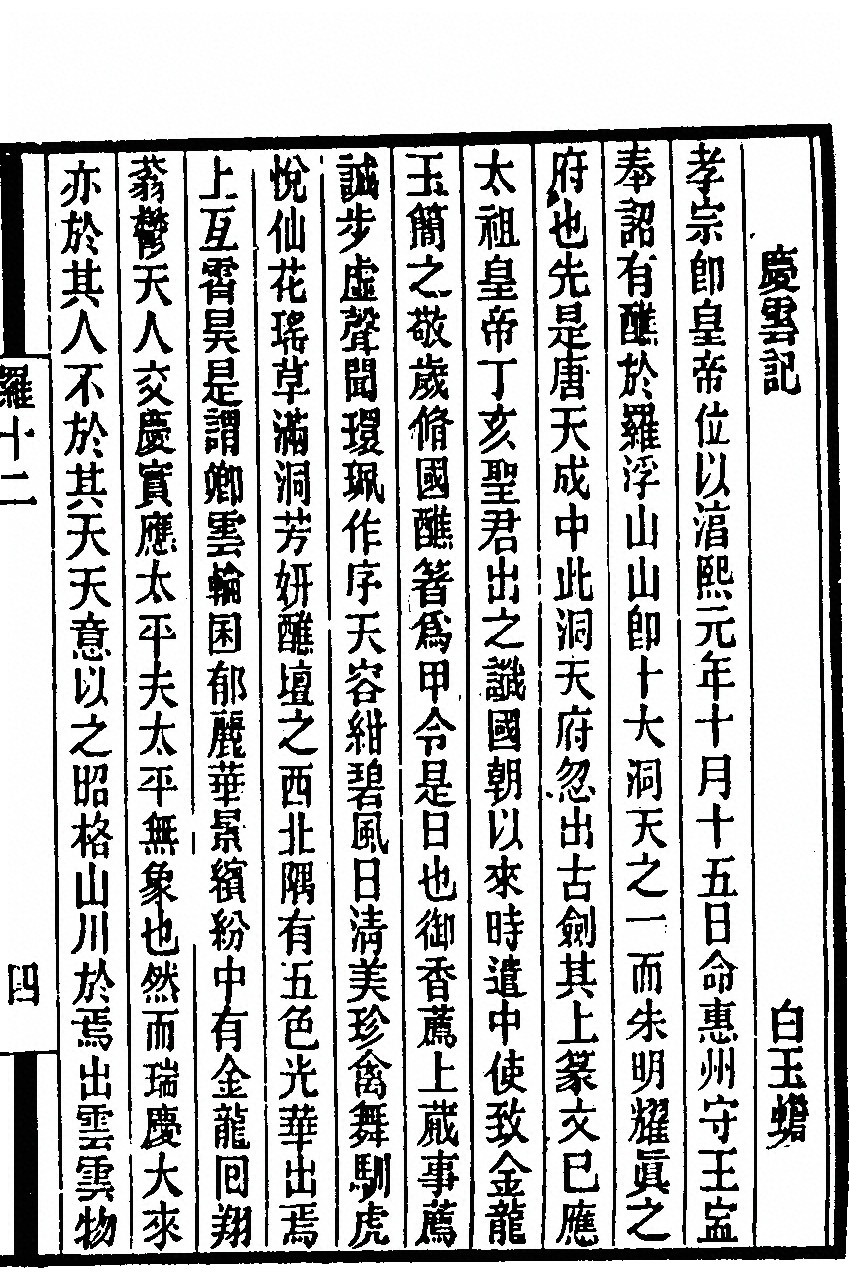 慶雲記 白玉蟾
孝宗卽皇帝位以淳熙元年十月十五日命惠州守王寍
奉詔有醮於羅浮山山卽十大洞天之一而朱明耀眞之
府也先是唐天成中此洞天府忽出古劍其上篆文已應
太祖皇帝丁亥聖君出之讖國朝以來時遣中使致金龍
玉簡之敬歲脩國醮著爲甲令是日也御香薦上蕆事薦
誠步虛聲聞環珮作序天容紺碧風日淸美珍禽舞馴虎
悅仙花瑤草滿洞芳妍醮壇之西北隅有五色光華出焉
上亙霄昊是謂卿雲輪囷郁麗華景繽紛中有金龍回翔
蓊鬱天人交慶實應太平夫太平無象也然而瑞慶大來
亦於其人不於其天天意以之昭格山川於焉出雲雲物
羅十二
四